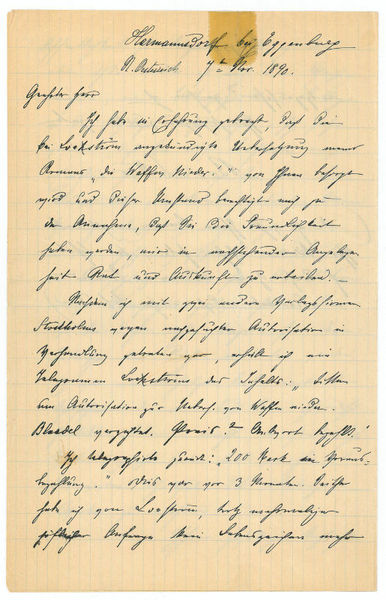 Hermannsdorf bei Eggenburg
N. Oesterreich 7te Nov. 1890.
Geehrter Herr
Ich habe in Erfahrung gebracht, daß die
bei Lockström angekündigte Uebersetzung meines
Romans „die Waffen Nieder!" von Ihnen besorgt
wird und dieser Umstand berechtigt mich zu
der Annahme, daß Sie die Freundlichkeit
haben werden, mir in nachstehender Angelegen-
heit Rat und Auskunft zu erteilen. –
Nachdem ich mit zwei andern Verlagsfirmen
Stockholms wegen nachgesuchter Autorisation in
Verhandlung getreten war, erhielt ich ein
Telegramm Lockströms des Inhalts: „bitten
um Autorisation zur Uebers. von Waffen nieder.
verzichtet. Preis? Antwort bezahlt."
Ich telegraphirte zurück: „200 Mark in Voraus-
bezahlung." Dies war vor 3 Monaten. Seither
habe ich von Lockström, trotz mehrmaliger
Anfrage kein Lebenszeichen mehr